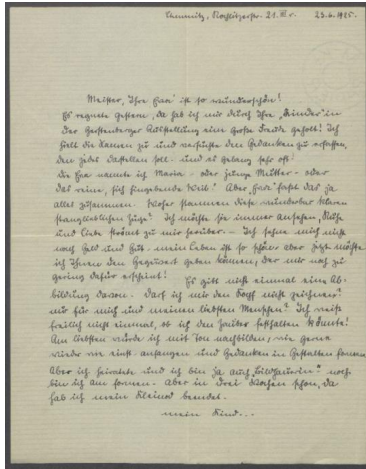 Chemnitz, Rochlitzerstr. 21. III r. 23.6.1925.
Meister, Ihre „Eva" ist so wunderschön!
Es regnete gestern, da hab ich mir durch Ihre „Kinder" in
der Gerstenberger Ausstellung eine große Freude geholt! Ich
hielt die Namen zu und versuchte den Gedanken zu erfassen,
den jedes darstellen soll – und es gelang sehr oft!
Die Eva nannte ich Maria – oder junge Mutter – oder
das reine, sich hingebende Weib! Aber „Eva" faßt das ja
alles zusammen. Woher stammen diese wunderbar klaren
Züge? Ich möchte sie immer ansehen, Ruhe
und Liebe strömt zu mir herüber. – Ich sehne mich nicht
nach Geld und Gut – mein Leben ist so schön – aber jetzt möchte
ich Ihnen den Gegenwert geben können, der mir noch zu
gering dafür erscheint! Es gibt nicht einmal eine Ab-
bildung davon. Darf ich mir den Kopf nicht zeichnen?
nur für mich und meinen liebsten Menschen? Ich weiß
freilich nicht einmal, ob ich den Zauber festhalten könnte!
Am liebsten würde ich mit Ton nachbilden, wie gerne
wieder wie einst anfangen und Gedanken in Gestalten formen.
Aber ich heiratete und ich bin ja auch „Bildhauerin" – noch
bin ich am formen – aber in drei Wochen schon, da
hab ich mein Kleinod beendet.
mein Kind...